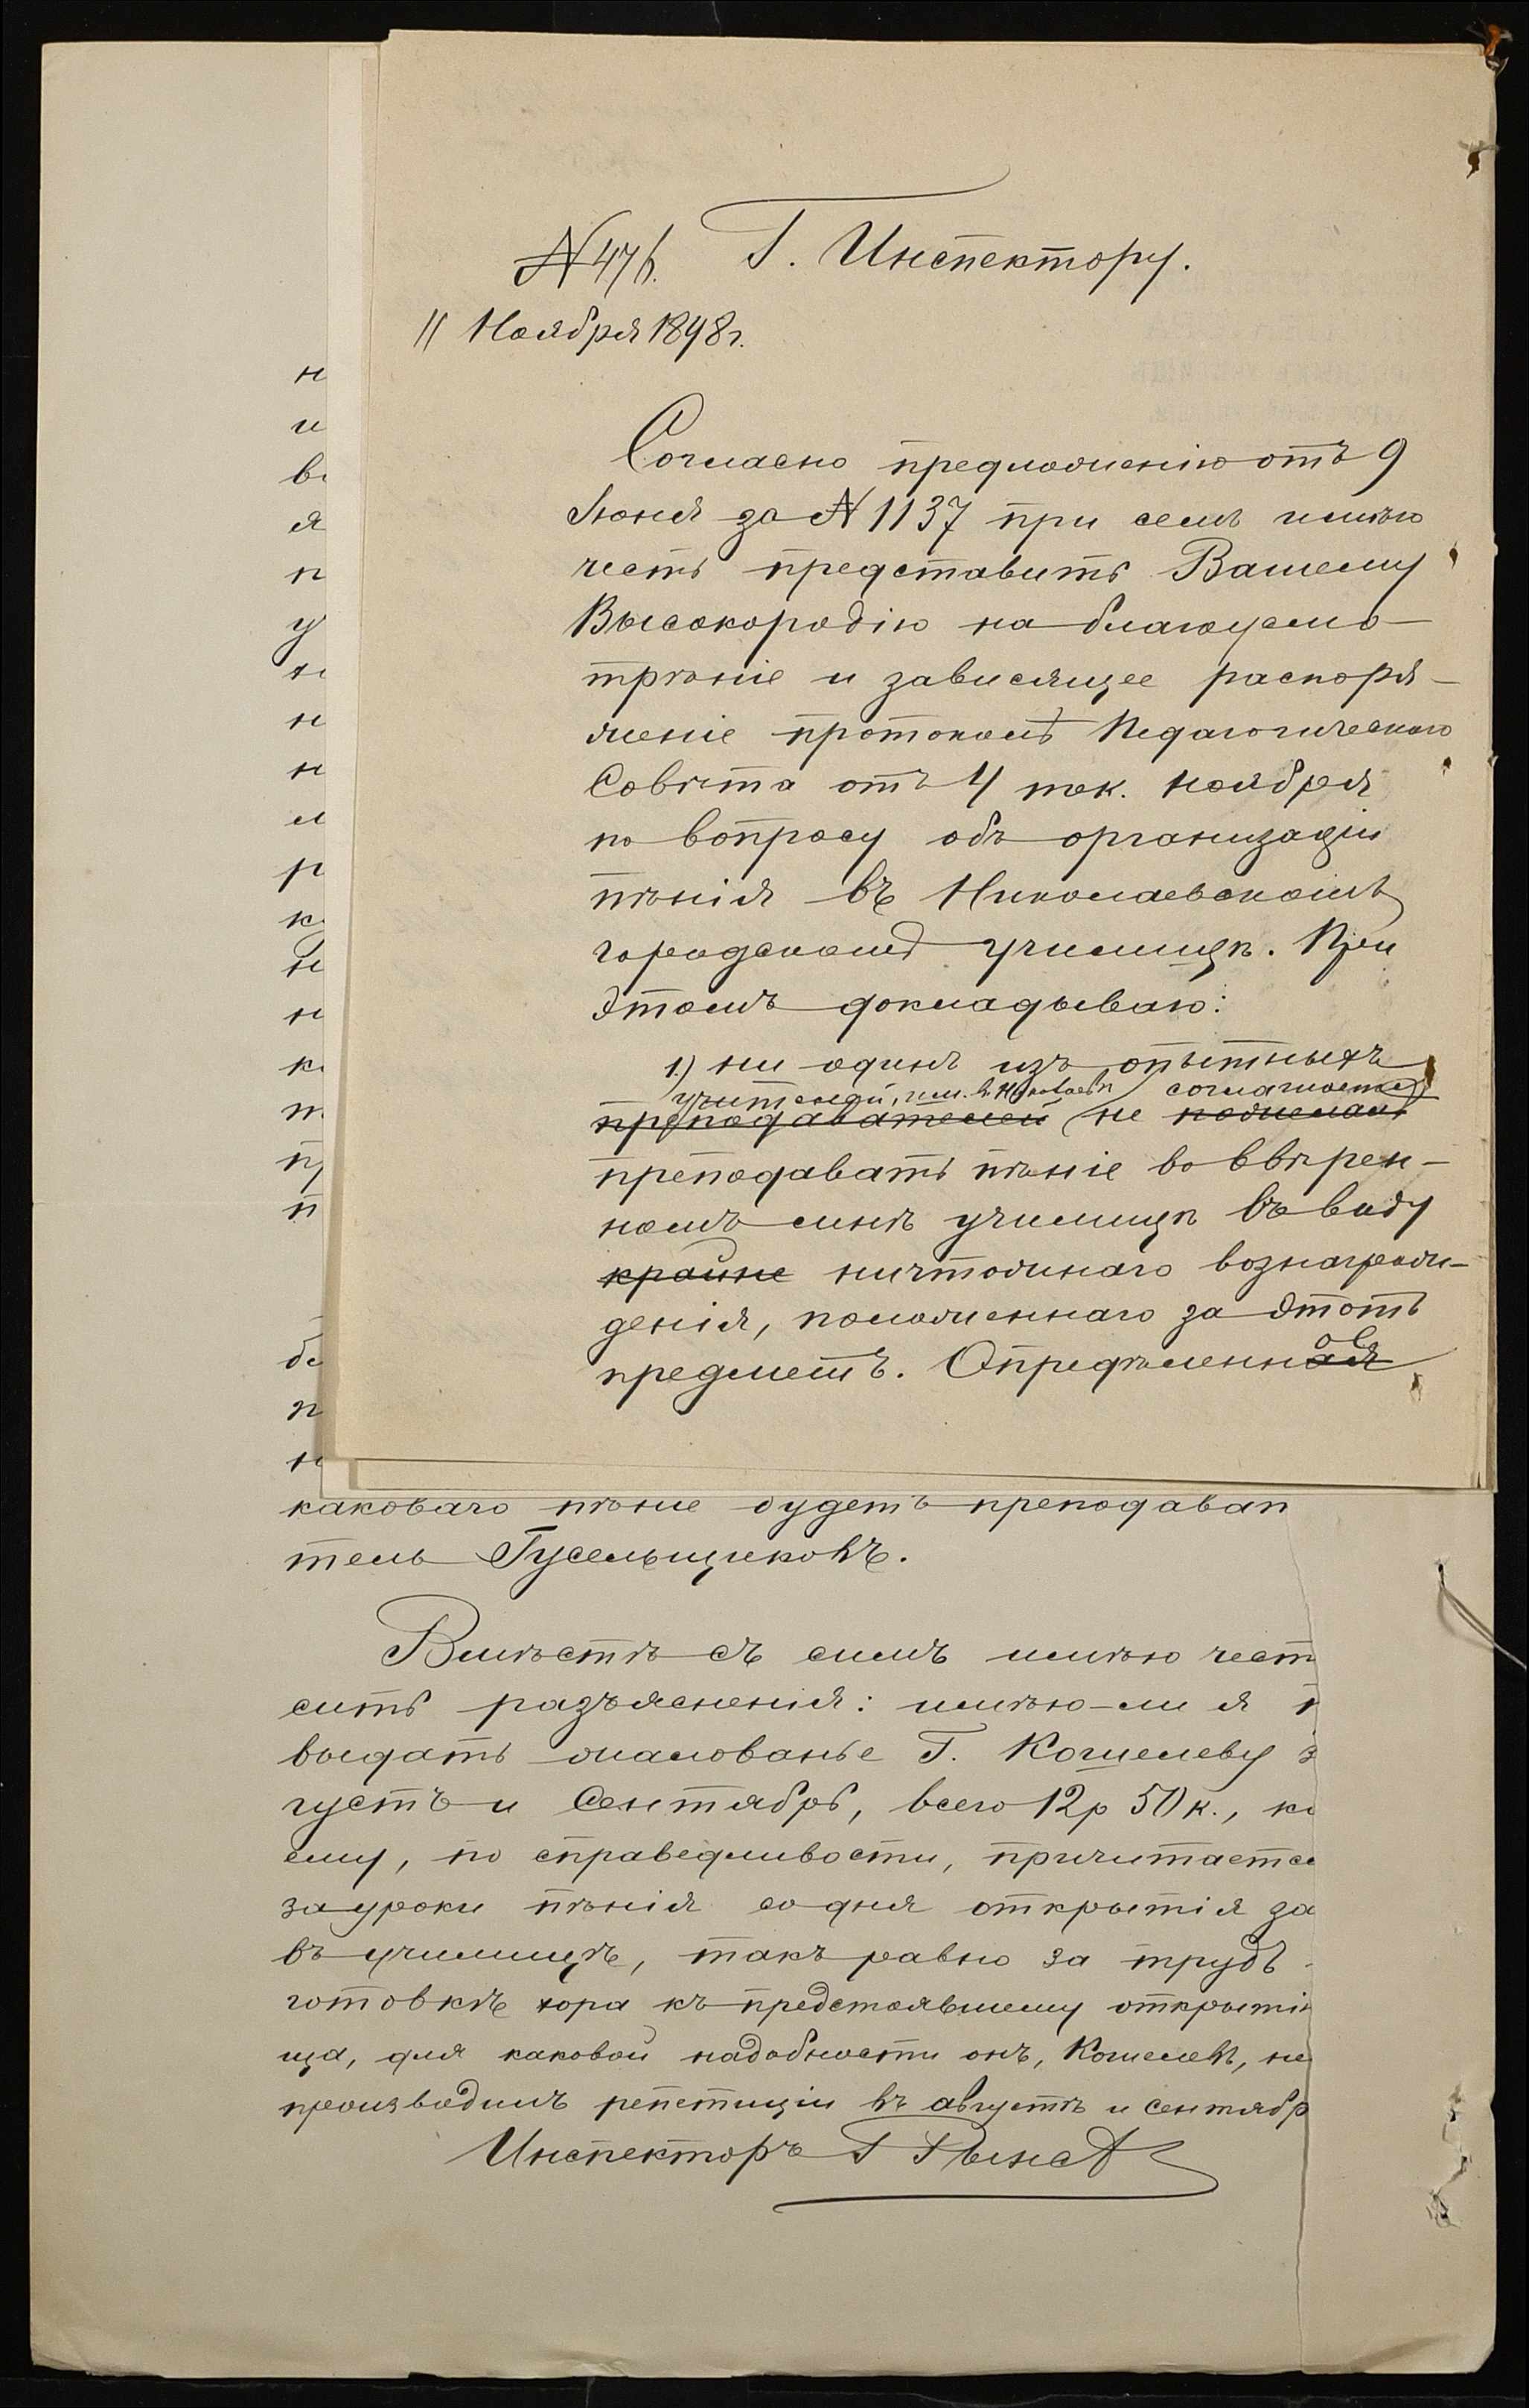 № 476. Г. Инспектору.
11 Ноября 1898 г.
Согласно предложенію отъ 9
Іюня за № 1137 при семъ имѣю
честь представить Вашему
Высокородію на благоусмо-
трѣніе и зависящее распоря-
женіе протоколъ Педагогическаго
Совѣта отъ 4 тек. Ноября
по вопросу объ организаціи
пѣнія въ Николаевскомъ
городскомъ училищѣ. При
этомъ докладываю:
1.) ни одинъ изъ опытныхъ
учителей, им. въ Николаевѣ соглашается
преподавателей не пожелалъ
преподавать пѣніе во ввѣрен-
номъ мнѣ училищѣ въ виду
крайне ничтожнаго вознагражи-
денія, положеннаго за этотъ
предметъ. Опредѣленная
ое
н
и
в
я
п
у
н
н
н
м
р
к
н
н
к
т
п
п
бе
п
н
каковаго пѣніе будетъ преподават
тель Гусельщиковъ.
Вмѣстѣ съ симъ имѣю чест
сить разъясненія: имѣю-ли я п
выдать жалованье Г. Кошелеву з
густъ и Сентябрь, всего 12 р 50 к., ко
ему, по справедливости, причитается
за уроки пѣнія со дня открытія за
въ училищѣ, такъ равно за трудъ
готовкѣ хора къ предстоявшему открытію
ща, для каковой надобности онъ, Кошелевъ, не
производилъ репетиціи въ августѣ и сентябр
Инспекторъ Г